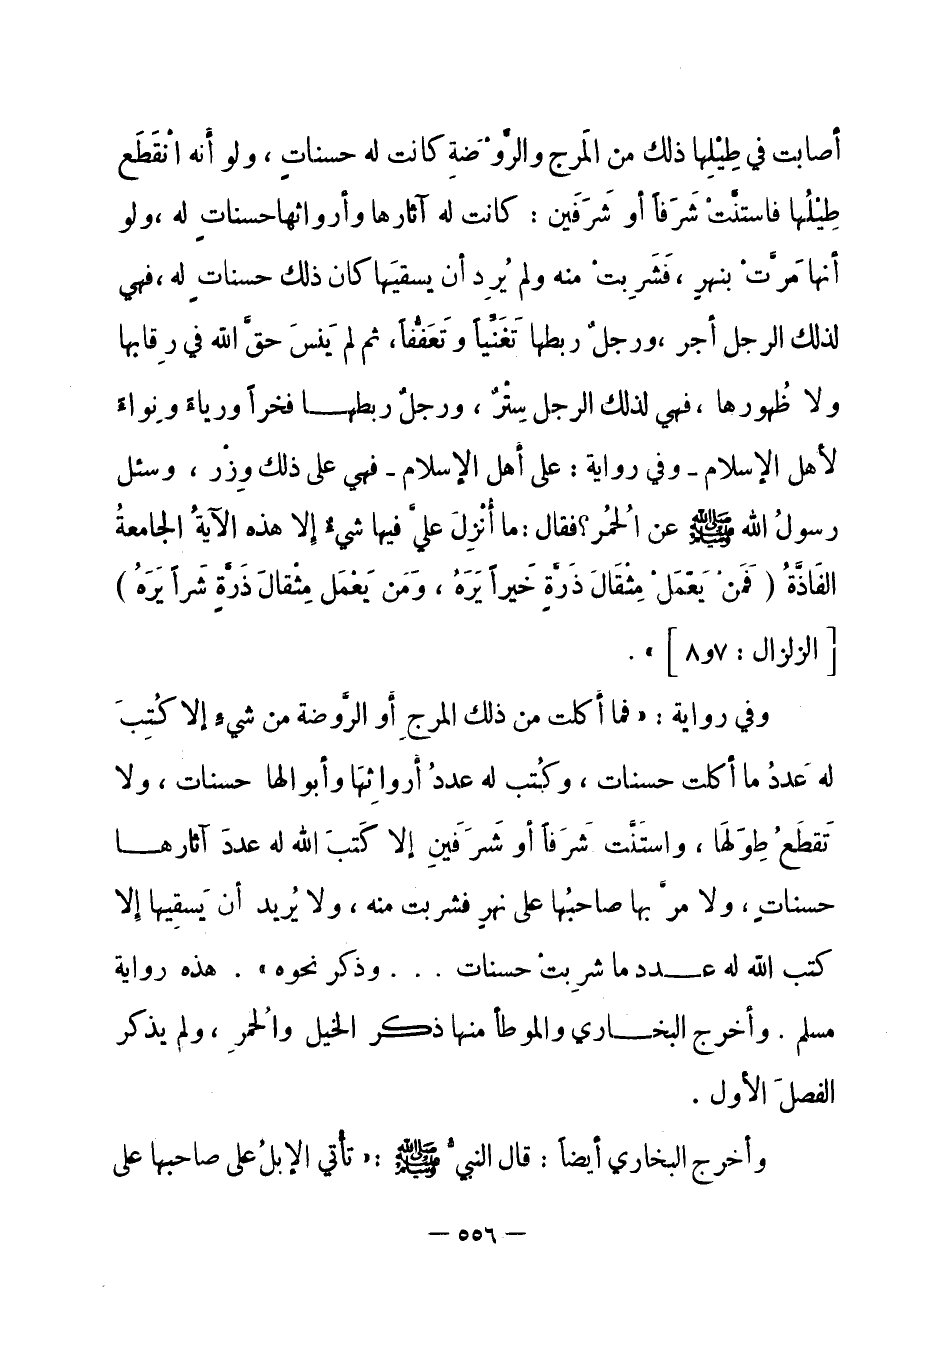 أصابت في طِيْلِها ذلك من المَرج والرَّوْضَةِ كانت له حسناتٍ ، ولو أنه انْقَطَع
طِيْلُها فاستنَّتْ شَرَفاً أو شَرَفَين : كانت له آثارها وأرواثها حسناتٍ له ، ولو
أنها مَرَّتْ بنهرٍ ، فَشَرِبتْ منه ولم يُرِد أن يسقيَها كان ذلك حسناتٍ له ، فهي
لذلك الرجل أجر ، ورجلٌ ربطها تَغَنِّياً وتَعَفُّفاً ، ثم لم يَنسَ حقَّ الله في رِقابها
ولا ظُهورها ، فهي لذلك الرجل سِتْرٌ ، ورجلٌ ربطها فخراً ورياءً ونِواءً
لأهل الإسلام ـ وفي رواية : على أهل الإسلام ـ فهي على ذلك وِزْر ، وسئل
رسولُ الله ﷺ عن الحُمُر ؟ فقال : ما أُنْزِلَ عليَّ فيها شيءٌ إلا هذه الآيةُ الجامعةُ
الفَاذَّةُ ( فَمَنْ يَعْمَلْ مِثْقَالَ ذَرَّةٍ خَيراً يَرَهُ ، وَمَن يَعْمَل مِثْقالَ ذَرَّةٍ شَراً يَرَهُ )
[ الزلزال : ٧و٨ ] » .
وفي رواية : « فما أكلت من ذلك المرجِ أو الرَّوضة من شيءٍ إلا كُتِبَ
له عَددُ ما أكلت حسنات ، وكُتب له عددُ أرواثِهَا وأبوالها حسنات ، ولا
تَقطَعُ طِوَلَهَا ، واستَنَّت شَرَفاً أو شَرَفَينِ إلا كَتبَ الله له عددَ آثارهـا
حسناتٍ ، ولا مرَّ بها صاحبُها على نهرٍ فشربت منه ، ولا يُريد أن يَسقِيها إلا
كتب الله له عـدد ما شرِبتْ حسنات . . . وذكر نحوه » . هذه رواية
مسلم . وأخرج البخـاري والموطأ منها ذكـر الخيل والحُمرِ ، ولم يذكر
الفصلَ الأول .
وأخرج البخاري أيضاً : قال النبيُّ ﷺ : « تأتي الإبلُ على صاحبها على
— ٥٥٦ —